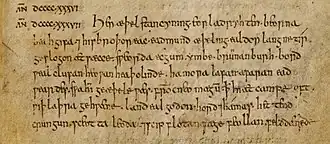 AN̄ dccccxxxvi
AN̄ dccccxxxvii Her æþelstan cyning eorla dryhten beorna
beahgifa ⁊ his broþor eac eadmund æþeling ealdor langne tir
geslogon æt sæcce sweorda ecgum ymbe brunanburh bord
weal clufan heowan heaþolinde hamora lafan afaran ead
weardes swa him geæþele wæs from cneo magum ꝥ hi æt campe oft
wiþ laþra gehwæne land ealgodon hord ⁊ hamas hettend
crungun sceotta leoda ⁊ scip flotan fæge feollan feld